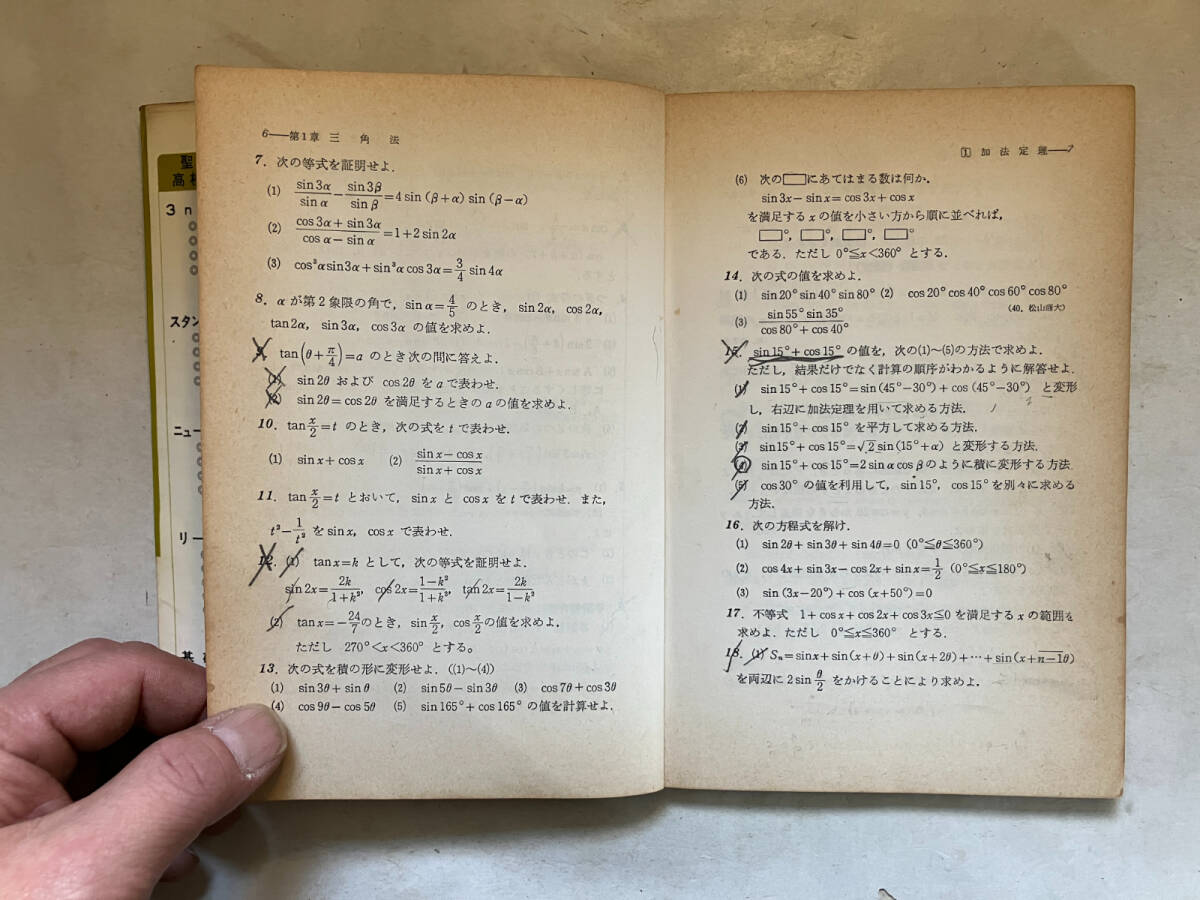 聖
高
3 n
スタン
ニュー
リー
基
6—第1章 三 角 法
7. 次の等式を証明せよ.
(1) sin3α/sinα − sin3β/sinβ = 4sin(β+α)sin(β−α)
(2) (cos3α+sin3α)/(cosα−sinα) = 1+2sin2α
(3) cos³αsin3α+sin³αcos3α = 3/4 sin4α
8. αが第2象限の角で, sinα=4/5 のとき, sin2α, cos2α,
tan2α, sin3α, cos3α の値を求めよ.
9. tan(θ+π/4)=a のとき次の間に答えよ.
(1) sin2θ および cos2θ をaで表わせ.
(2) sin2θ=cos2θ を満足するときのaの値を求めよ.
10. tan x/2=t のとき, 次の式をtで表わせ.
(1) sinx+cosx (2) (sinx−cosx)/(sinx+cosx)
11. tan x/2=t とおいて, sinx と cosx をtで表わせ. また,
t²−1/t² をsinx, cosx で表わせ.
12. (1) tanx=k として, 次の等式を証明せよ.
sin2x=2k/(1+k²), cos2x=(1−k²)/(1+k²), tan2x=2k/(1−k²)
(2) tanx=−24/7のとき, sin x/2, cos x/2の値を求めよ,
ただし 270°<x<360° とする。
13. 次の式を積の形に変形せよ. ((1)~(4))
(1) sin3θ+sinθ (2) sin5θ−sin3θ (3) cos7θ+cos3θ
(4) cos9θ−cos5θ (5) sin165°+cos165° の値を計算せよ.
1 加 法 定 理—7
(6) 次の□にあてはまる数は何か.
sin3x−sinx=cos3x+cosx
を満足するxの値を小さい方から順に並べれば,
□°, □°, □°, □°
である. ただし 0°≦x<360° とする.
14. 次の式の値を求めよ.
(1) sin20°sin40°sin80° (2) cos20°cos40°cos60°cos80°
(40. 松山商大)
(3) sin55°sin35°/(cos80°+cos40°)
15. sin15°+cos15° の値を, 次の(1)~(5)の方法で求めよ.
ただし, 結果だけでなく計算の順序がわかるように解答せよ.
(1) sin15°+cos15°=sin(45°−30°)+cos(45°−30°) と変形
し, 右辺に加法定理を用いて求める方法.
(2) sin15°+cos15° を平方して求める方法.
(3) sin15°+cos15°=√2sin(15°+α) と変形する方法.
(4) sin15°+cos15°=2sinαcosβのように積に変形する方法
(5) cos30° の値を利用して, sin15°, cos15°を別々に求める
方法.
16. 次の方程式を解け.
(1) sin2θ+sin3θ+sin4θ=0 (0°≦θ≦360°)
(2) cos4x+sin3x−cos2x+sinx=1/2 (0°≦x≦180°)
(3) sin(3x−20°)+cos(x+50°)=0
17. 不等式 1+cosx+cos2x+cos3x≦0 を満足するxの範囲を
求めよ. ただし 0°≦x≦360° とする.
18. (1) Sₙ=sinx+sin(x+θ)+sin(x+2θ)+…+sin(x+n−1θ)
を両辺に 2sin θ/2 をかけることにより求めよ.